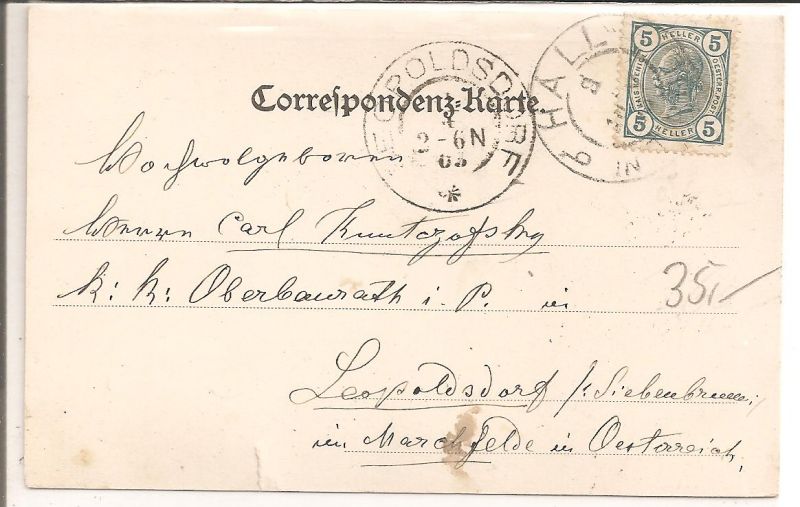 Correspondenz-Karte.
LEOPOLDSDORF
4
2-6N
03
HALL
5 HELLER 5
KAIS. KOENIGL. OESTERR. POST
5 HELLER 5
Hochwolgeboren
Herrn Carl Kuntzofsky
k: k: Oberbaurath i. P. in
35,-
Leopoldsdorf /: Siebenbrunn:/
im Marchfelde in Oesterreich,